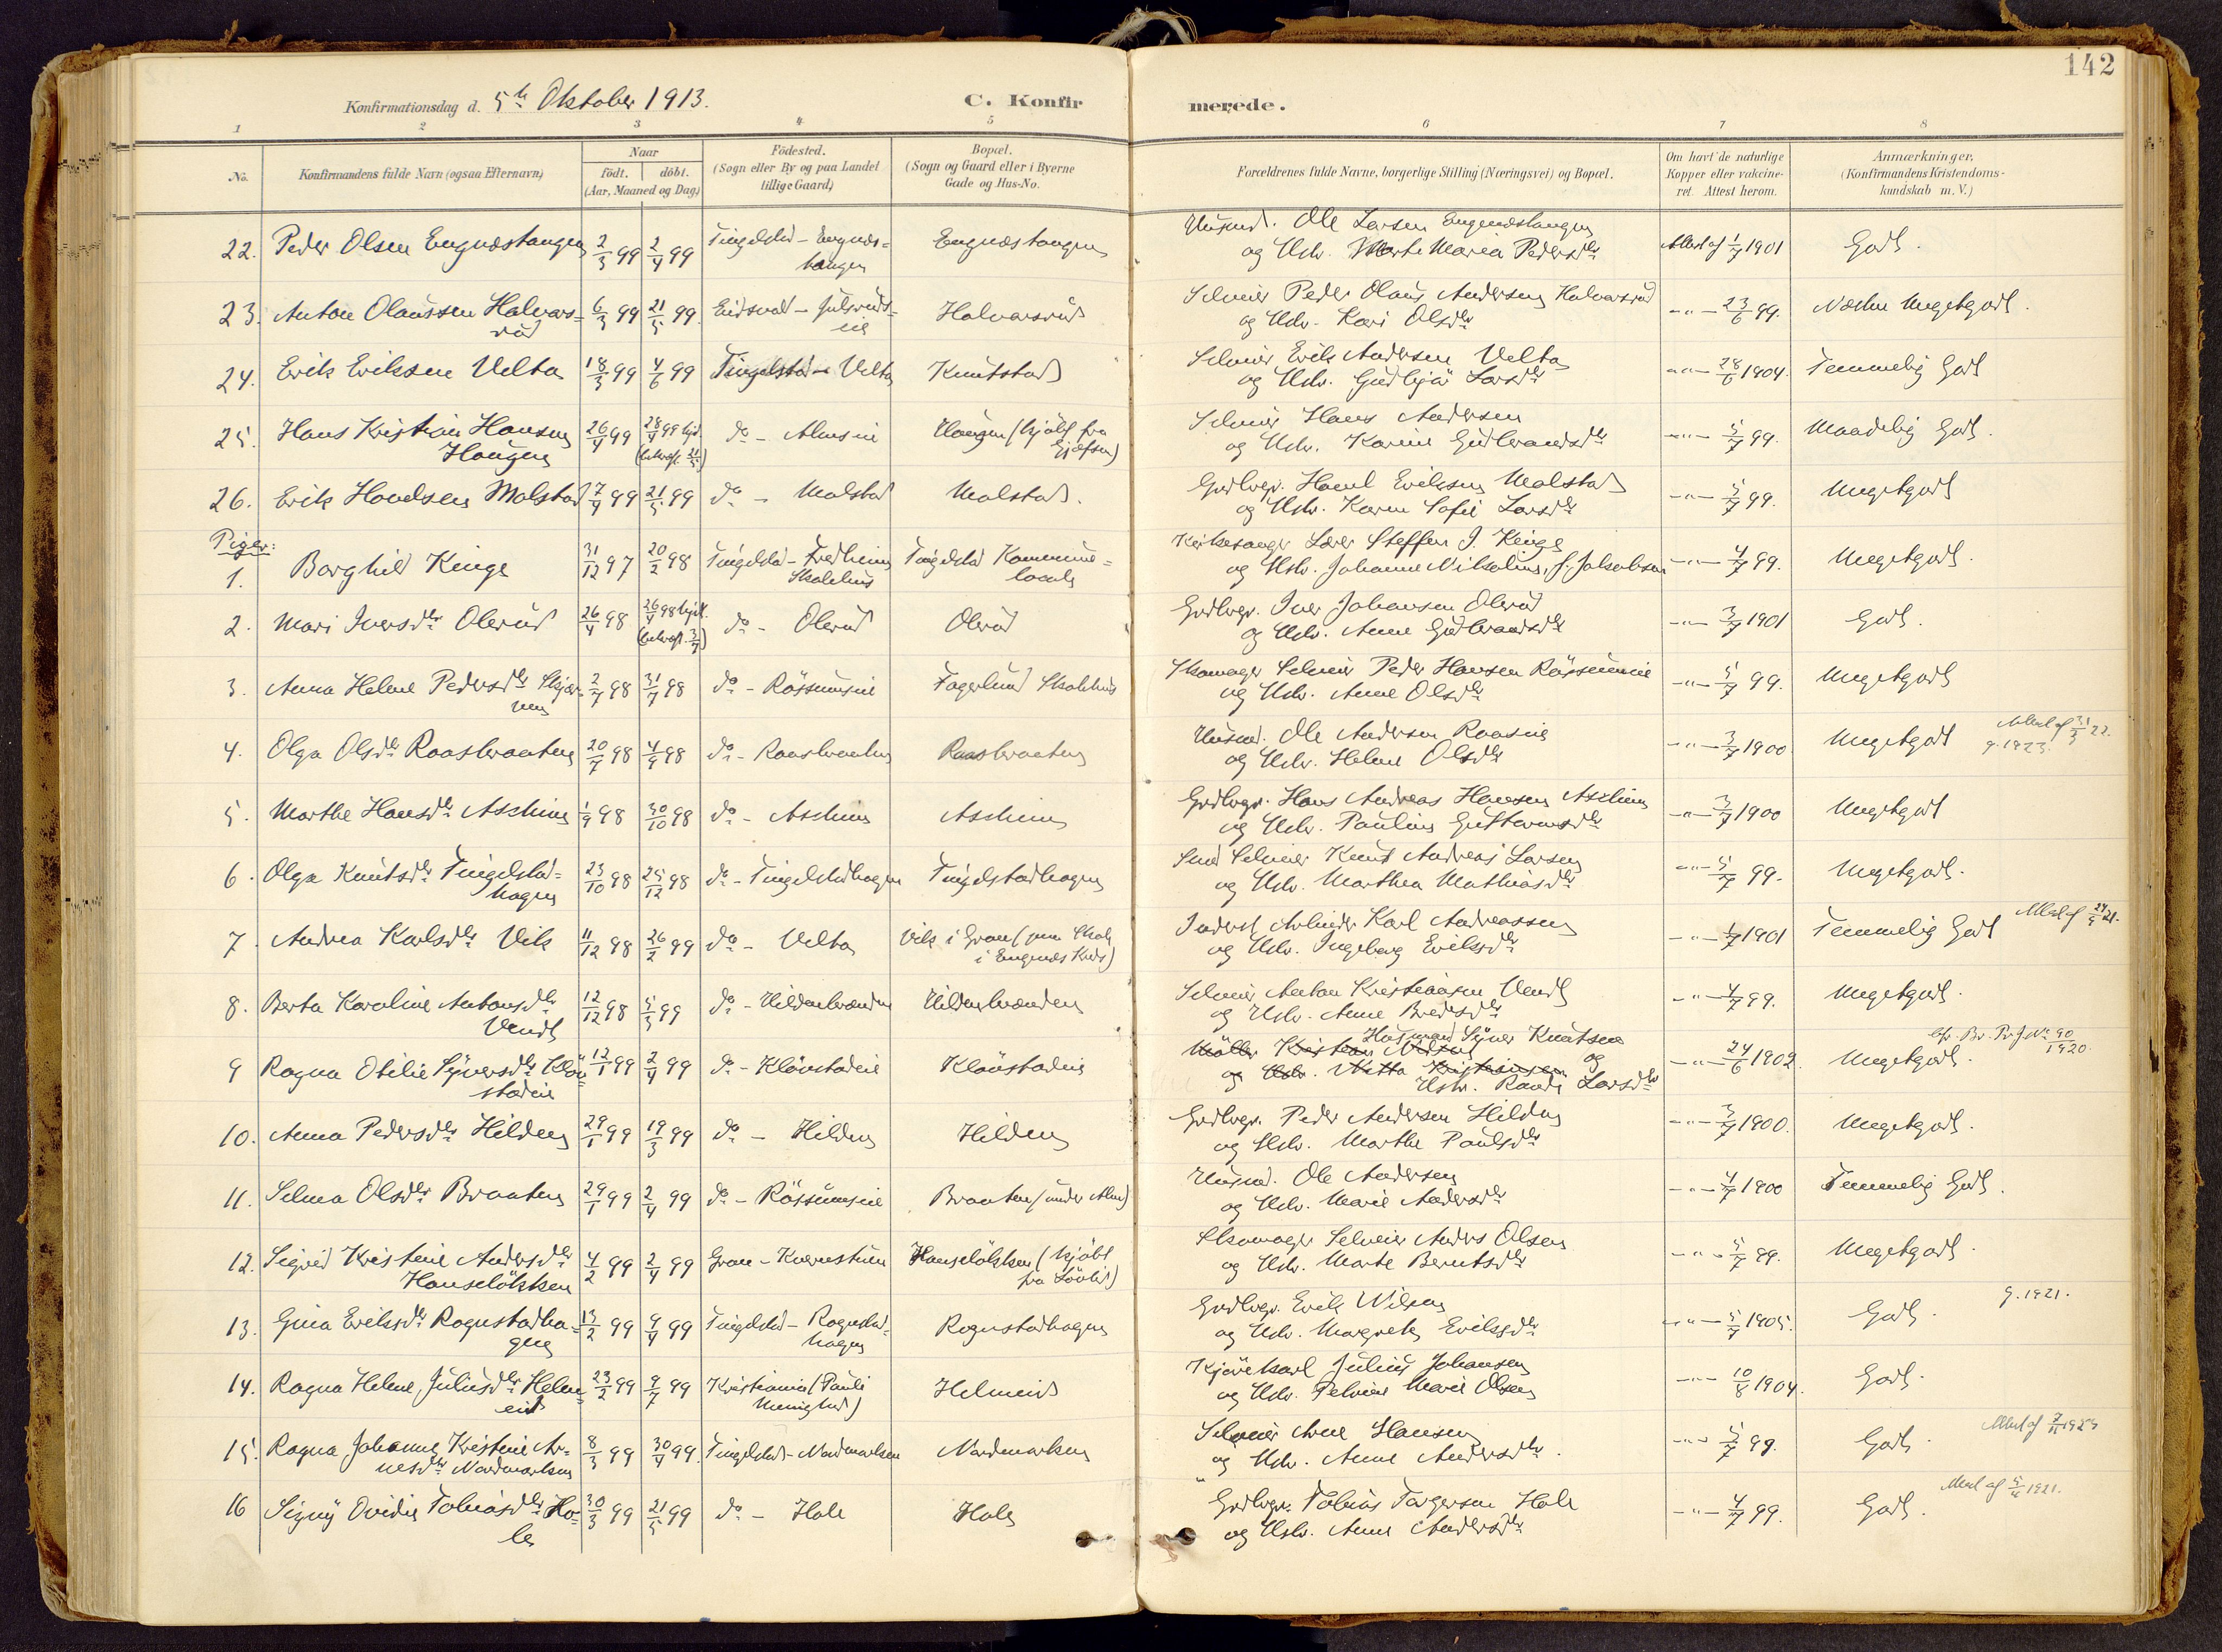 142
Konfirmationsdag d. 5te Oktober 1913.
C. Konfirmerede.
1 2 3 4 5 6 7 8
No.
Konfirmandens fulde Navn (ogsaa Efternavn)
Naar
födt. döbt.
(Aar, Maaned og Dag)
Födested.
(Sogn eller By og paa Landet
tillige Gaard)
Bopæl.
(Sogn og Gaard eller i Byerne
Gade og Hus-No.
Forældrenes fulde Navne, borgerlige Stilling (Næringsvei) og Bopæl.
Om havt de naturlige
Kopper eller vakcine-
ret. Attest herom.
Anmærkninger.
(Konfirmandens Kristendoms-
kundskab m. V.)
22. Peder Olsen Engnæstangen 2/3 99 2/4 99 Tingelstad - Engnæs=
tangen Engnæstangen
Husmd. Ole Larsen Engnæstangen
og Hstr. Marte Maria Pedersdtr Attest af 1/7 1901 Godt.
23. Anton Olaussen Halvors=
rud 6/3 99 21/5 99. Eidsvold - Julsruds=
eie Halvorsrud
Selveier Peder Olaus Andersen Halvorsrud
og Hstr. Kari Olsdtr -"- 23/6 99. Næsten Megetgodt.
24. Erik Eriksen Velta 18/3 99 4/6 99 Tingelstad - Velta Knutstad
Selveier Erik Andersen Velta
og Hstr. Gudbjør Larsdtr -"- 28/6 1904. Temmelig Godt
25. Hans Kristian Hansen
Haugen 26/4 99 28/4 99 hjd.
(bekræft. 21/5) do - Almseie Haugen (hjdbt fra
Gjefsen)
Selveier Hans Andersen
og Hstr. Karine Gudbrandsdtr -"- 5/7 99. Maadelig Godt.
26. Erik Havelsen Molstad 7/4 99 21/5 99 do - Molstad Molstad.
Grdbrgr. Havel Eriksen Molstad
og Hstr. Karen Sofie Larsdtr -"- 5/7 99. Megetgodt
Piger:
1. Borghild Kinge 31/12 97 20/2 98 Tingelstad - Fredheim
Skolehus Tingelstad Kommune=
locale
Kirkesanger Lærer Steffen J. Kinge
og Hstr. Johanne Nikoline, f. Jakobsen -"- 4/7 99. Megetgodt.
2. Mari Iversdtr Olerud 26/4 98 26/4 98 hjd.
(bekræft. 3/7) do - Olerud Olerud
Grdbrgr. Iver Johansen Olerud
og Hstr. Anne Gudbrandsdtr -"- 3/7 1901 Godt.
3. Anna Helene Pedersdtr Skjær=
ven 2/7 98 31/7 98 do - Røssumseie Fagerlund Skolehus
Skomager Selveier Peder Hansen Røssumeie
og Hstr. Anne Olsdtr -"- 5/7 99. Megetgodt
4. Olga Olsdtr Raasbraaten 20/7 98 4/9 98 do - Raasbraaten Raasbraaten
Husmd. Ole Andersen Raaseie
og Hstr. Helene Olsdtr -"- 3/7 1900 Megetgodt Attest af 31/3 22.
g. 1923.
5. Marthe Hansdtr Aschim 1/9 98 30/10 98 do - Aschim Aschim
Grdbrgr. Hans Andreas Hansen Aschim
og Hstr. Pauline Guttormsdtr -"- 3/7 1900 Megetgodt
6. Olga Knutsdtr Tingelstad=
hagen 23/10 98 25/12 98 do - Tingelstadhagen Tingelstadhagen
Smed Selveier Knut Andreas Larsen
og Hstr. Marthea Mathiasdtr -"- 5/7 99. Megetgodt.
7. Andrea Karlsdtr Vik 11/12 98 26/2 99 do - Velta Vik i Gran (men Skole
i Engnæs Kreds)
Inderst Arbeider Karl Andreassen
og Hstr. Ingeborg Eriksdtr -"- 1/7 1901 Temmelig Godt Attest af 24/5 21.
8. Berta Karoline Antonsdtr
Vendt 12/12 98 5/3 99 do - Hildenbrænden Hildenbrænden
Selveier Anton Kristiansen Vendt
og Hstr. Anne Bredesdtr -"- 4/7 99. Megetgodt.
9 Ragna Otilie Syversdtr Kløv=
stadeie 12/1 99 2/4 99 do - Kløvstadeie Kløvstadeie
Husmand Syver Knutsen
Møller Kristian Nilsen og
og Hstr. Netta Kristiansen
Hstr. Randi Larsdtr -"- 24/6 1902. Megetgodt. Cfr. Br. Pr. J. No 90/1920.
10. Anna Pedersdtr Hilden 29/1 99 19/3 99 do - Hilden Hilden
Grdbrgr. Peder Andersen Hilden
og Hstr. Marthe Paulsdtr -"- 3/7 1900. Megetgodt.
11. Selma Olsdtr Braaten 29/1 99 2/4 99 do - Røssumseie Braaten (under Alm)
Husmd. Ole Andersen
og Hstr. Marie Andersdtr -"- 4/7 1900 Temmelig Godt.
12. Sigrid Kristine Andersdtr
Hanseløkken 4/2 99 2/4 99 Gran - Kvernstuen Hanseløkken (hjdbt
fra Løvlid)
Skomager Selveier Anders Olsen
og Hstr. Marte Berntsdtr -"- 5/7 99. Megetgodt.
13. Gina Eriksdtr Rognstadha=
gen 13/2 99 9/4 99 Tingelstad - Rognstad=
hagen Rognstadhagen
Grdbrgr. Erik Nilsen
og Hstr. Margrete Eriksdtr -"- 5/7 1905. Godt. g. 1921.
14. Ragna Helene, Juliusdtr Helm=
eid 23/2 99 9/7 99 Kristiania (Pauli
Menighed) Helmeid
Kjørekarl Julius Johansen
og Hstr. Petrine Marie Olsen -"- 10/8 1904. Godt.
15. Ragna Johanne Kristine Ar=
nesdtr Nordmarken 8/3 99 30/4 99. Tingelstad - Nordmarken Nordmarken
Selveier Arne Hansen
og Hstr. Anne Andersdtr. -"- 5/7 99. Godt. Attest af 7/11 1923
16 Signy Ovidie Tobiasdtr Ho=
le 30/3 99 21/5 99 do - Hole Hole
Grdbrgr. Tobias Torgersen Hole
og Hstr. Anne Andersdtr -"- 4/7 99. Godt. Attest af 5/4 1921.